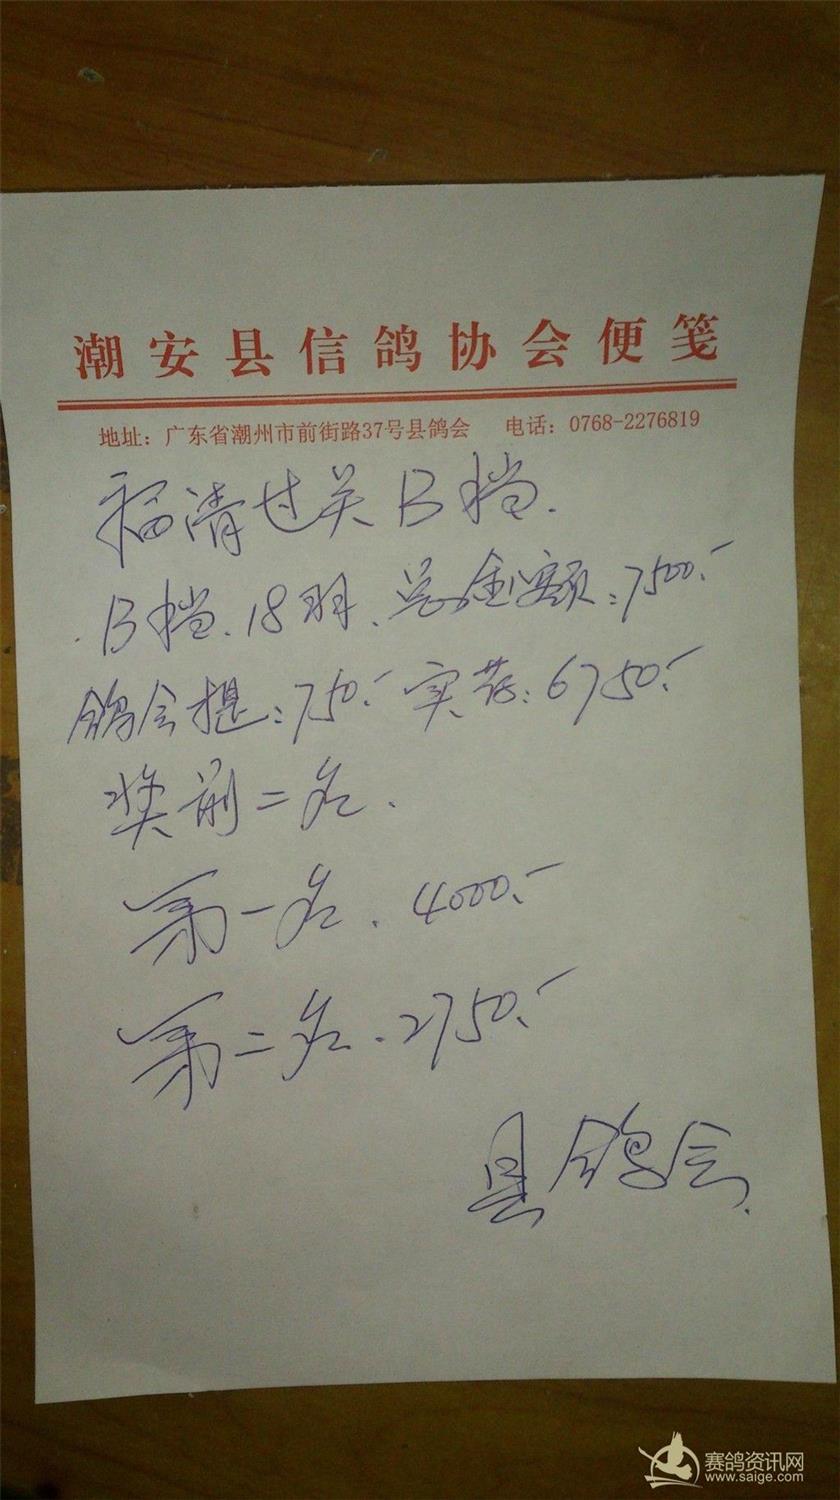 潮安县信鸽协会便笺
地址：广东省潮州市前街路37号县鸽会 电话：0768-2276819
福清过关B档.
B档.18羽.总金额:7500.-
鸽会提:750.- 实发:6750.-
奖前二名.
第一名.4000.-
第二名.2750.-
县鸽会.
赛鸽资讯网
www.saige.com